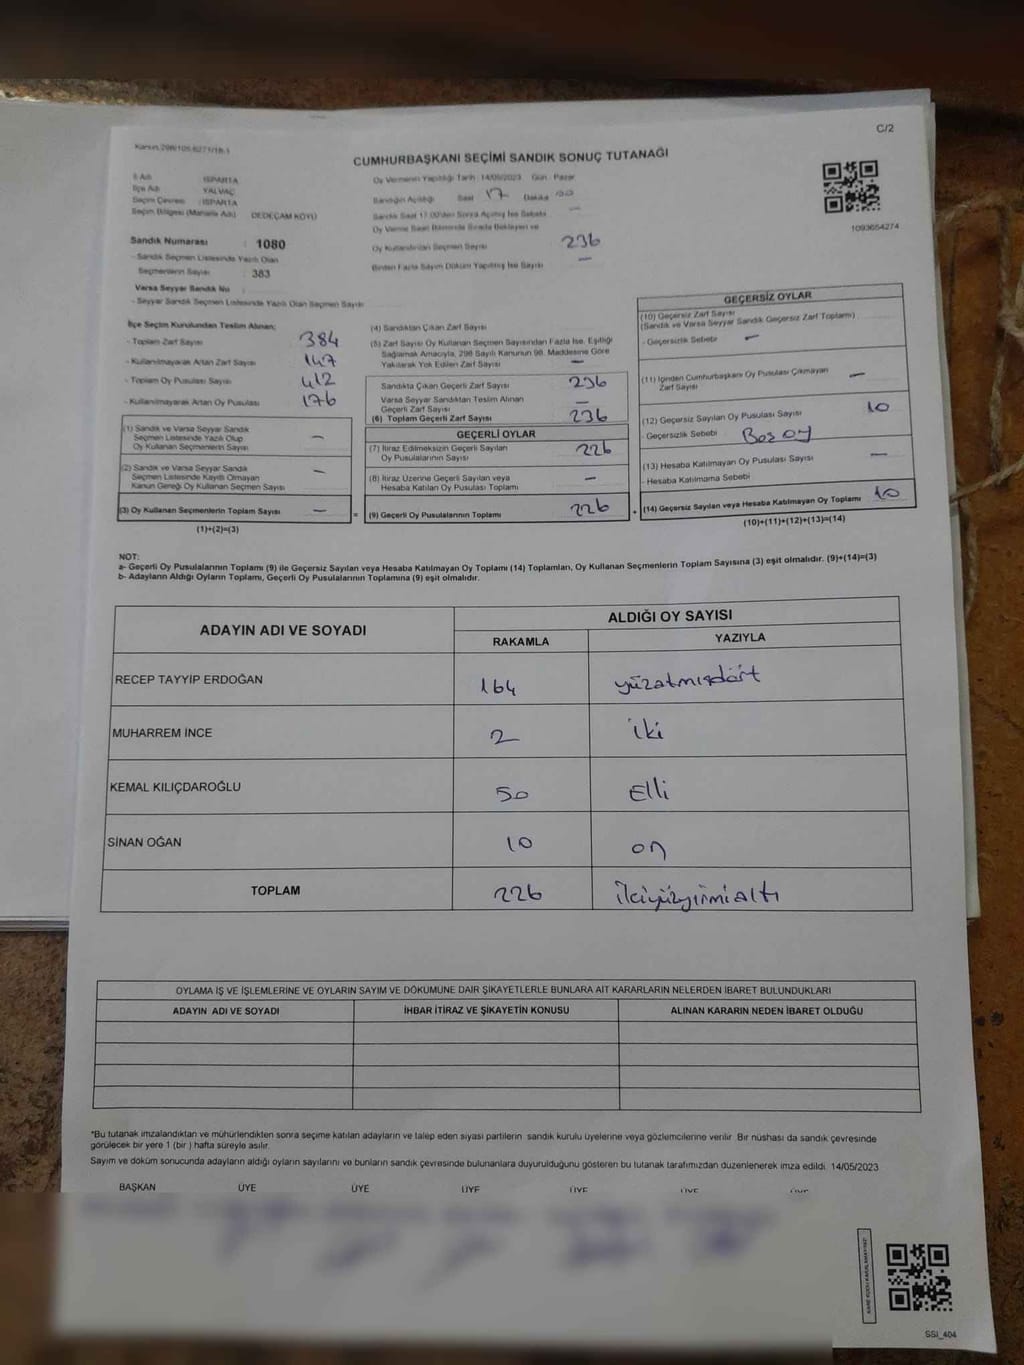 C/2
Kanun:298/105.6271/16.1
CUMHURBAŞKANI SEÇİMİ SANDIK SONUÇ TUTANAĞI
İl Adı : ISPARTA
İlçe Adı : YALVAÇ
Seçim Çevresi : ISPARTA
Seçim Bölgesi (Mahalle Adı) DEDEÇAM KÖYÜ
Sandık Numarası : 1080
- Sandık Seçmen Listesinde Yazılı Olan
Seçmenlerin Sayısı : 383
Varsa Seyyar Sandık No :
- Seyyar Sandık Seçmen Listesinde Yazılı Olan Seçmen Sayısı :
Oy Vermenin Yapıldığı Tarih :14/05/2023 Gün: Pazar
Sandığın Açıldığı Saat 17 Dakika 00
Sandık Saat 17:00'den Sonra Açılmış İse Sebebi —
Oy Verme Saati Bitiminde Sırada Bekleyen ve
Oy Kullandırılan Seçmen Sayısı 236
Birden Fazla Sayım Döküm Yapılmış İse Sayısı —
1093654274
İlçe Seçim Kurulundan Teslim Alınan;
- Toplam Zarf Sayısı 384
- Kullanılmayarak Artan Zarf Sayısı 147
- Toplam Oy Pusulası Sayısı 412
- Kullanılmayarak Artan Oy Pusulası 176
(1) Sandık ve Varsa Seyyar Sandık
Seçmen Listesinde Yazılı Olup
Oy Kullanan Seçmenlerin Sayısı —
(2) Sandık ve Varsa Seyyar Sandık
Seçmen Listesinde Kayıtlı Olmayan
Kanun Gereği Oy Kullanan Seçmen Sayısı —
(3) Oy Kullanan Seçmenlerin Toplam Sayısı —
(1)+(2)=(3)
(4) Sandıktan Çıkan Zarf Sayısı
(5) Zarf Sayısı Oy Kullanan Seçmen Sayısından Fazla İse, Eşitliği
Sağlamak Amacıyla, 298 Sayılı Kanunun 98. Maddesine Göre
Yakılarak Yok Edilen Zarf Sayısı —
Sandıkta Çıkan Geçerli Zarf Sayısı 236
Varsa Seyyar Sandıktan Teslim Alınan
Geçerli Zarf Sayısı —
(6) Toplam Geçerli Zarf Sayısı 236
GEÇERLİ OYLAR
(7) İtiraz Edilmeksizin Geçerli Sayılan
Oy Pusulalarının Sayısı 226
(8) İtiraz Üzerine Geçerli Sayılan veya
Hesaba Katılan Oy Pusulası Toplamı —
= (9) Geçerli Oy Pusulalarının Toplamı 226
GEÇERSİZ OYLAR
(10) Geçersiz Zarf Sayısı
(Sandık ve Varsa Seyyar Sandık Geçersiz Zarf Toplamı)
- Geçersizlik Sebebi —
(11) İçinden Cumhurbaşkanı Oy Pusulası Çıkmayan
Zarf Sayısı —
(12) Geçersiz Sayılan Oy Pusulası Sayısı 10
- Geçersizlik Sebebi Boş oy
(13) Hesaba Katılmayan Oy Pusulası Sayısı —
- Hesaba Katılmama Sebebi
+ (14) Geçersiz Sayılan veya Hesaba Katılmayan Oy Toplamı 10
(10)+(11)+(12)+(13)=(14)
NOT:
a- Geçerli Oy Pusulalarının Toplamı (9) ile Geçersiz Sayılan veya Hesaba Katılmayan Oy Toplamı (14) Toplamları, Oy Kullanan Seçmenlerin Toplam Sayısına (3) eşit olmalıdır. (9)+(14)=(3)
b- Adayların Aldığı Oyların Toplamı, Geçerli Oy Pusulalarının Toplamına (9) eşit olmalıdır.
ADAYIN ADI VE SOYADI ALDIĞI OY SAYISI
RAKAMLA YAZIYLA
RECEP TAYYİP ERDOĞAN 164 yüzatmışdört
MUHARREM İNCE 2 iki
KEMAL KILIÇDAROĞLU 50 Elli
SİNAN OĞAN 10 on
TOPLAM 226 ikiyüzyirmialtı
OYLAMA İŞ VE İŞLEMLERİNE VE OYLARIN SAYIM VE DÖKÜMÜNE DAİR ŞİKAYETLERLE BUNLARA AİT KARARLARIN NELERDEN İBARET BULUNDUKLARI
ADAYIN ADI VE SOYADI İHBAR İTİRAZ VE ŞİKAYETİN KONUSU ALINAN KARARIN NEDEN İBARET OLDUĞU
*Bu tutanak imzalandıktan ve mühürlendikten sonra seçime katılan adayların ve talep eden siyasi partilerin sandık kurulu üyelerine veya gözlemcilerine verilir. Bir nüshası da sandık çevresinde
görülecek bir yere 1 (bir ) hafta süreyle asılır.
Sayım ve döküm sonucunda adayların aldığı oyların sayılarını ve bunların sandık çevresinde bulunanlara duyurulduğunu gösteren bu tutanak tarafımızdan düzenlenerek imza edildi. 14/05/2023
BAŞKAN ÜYE ÜYE ÜYE ÜYE ÜYE ÜYE
KARE KODU KARALAMAYINIZ!
SSI_404